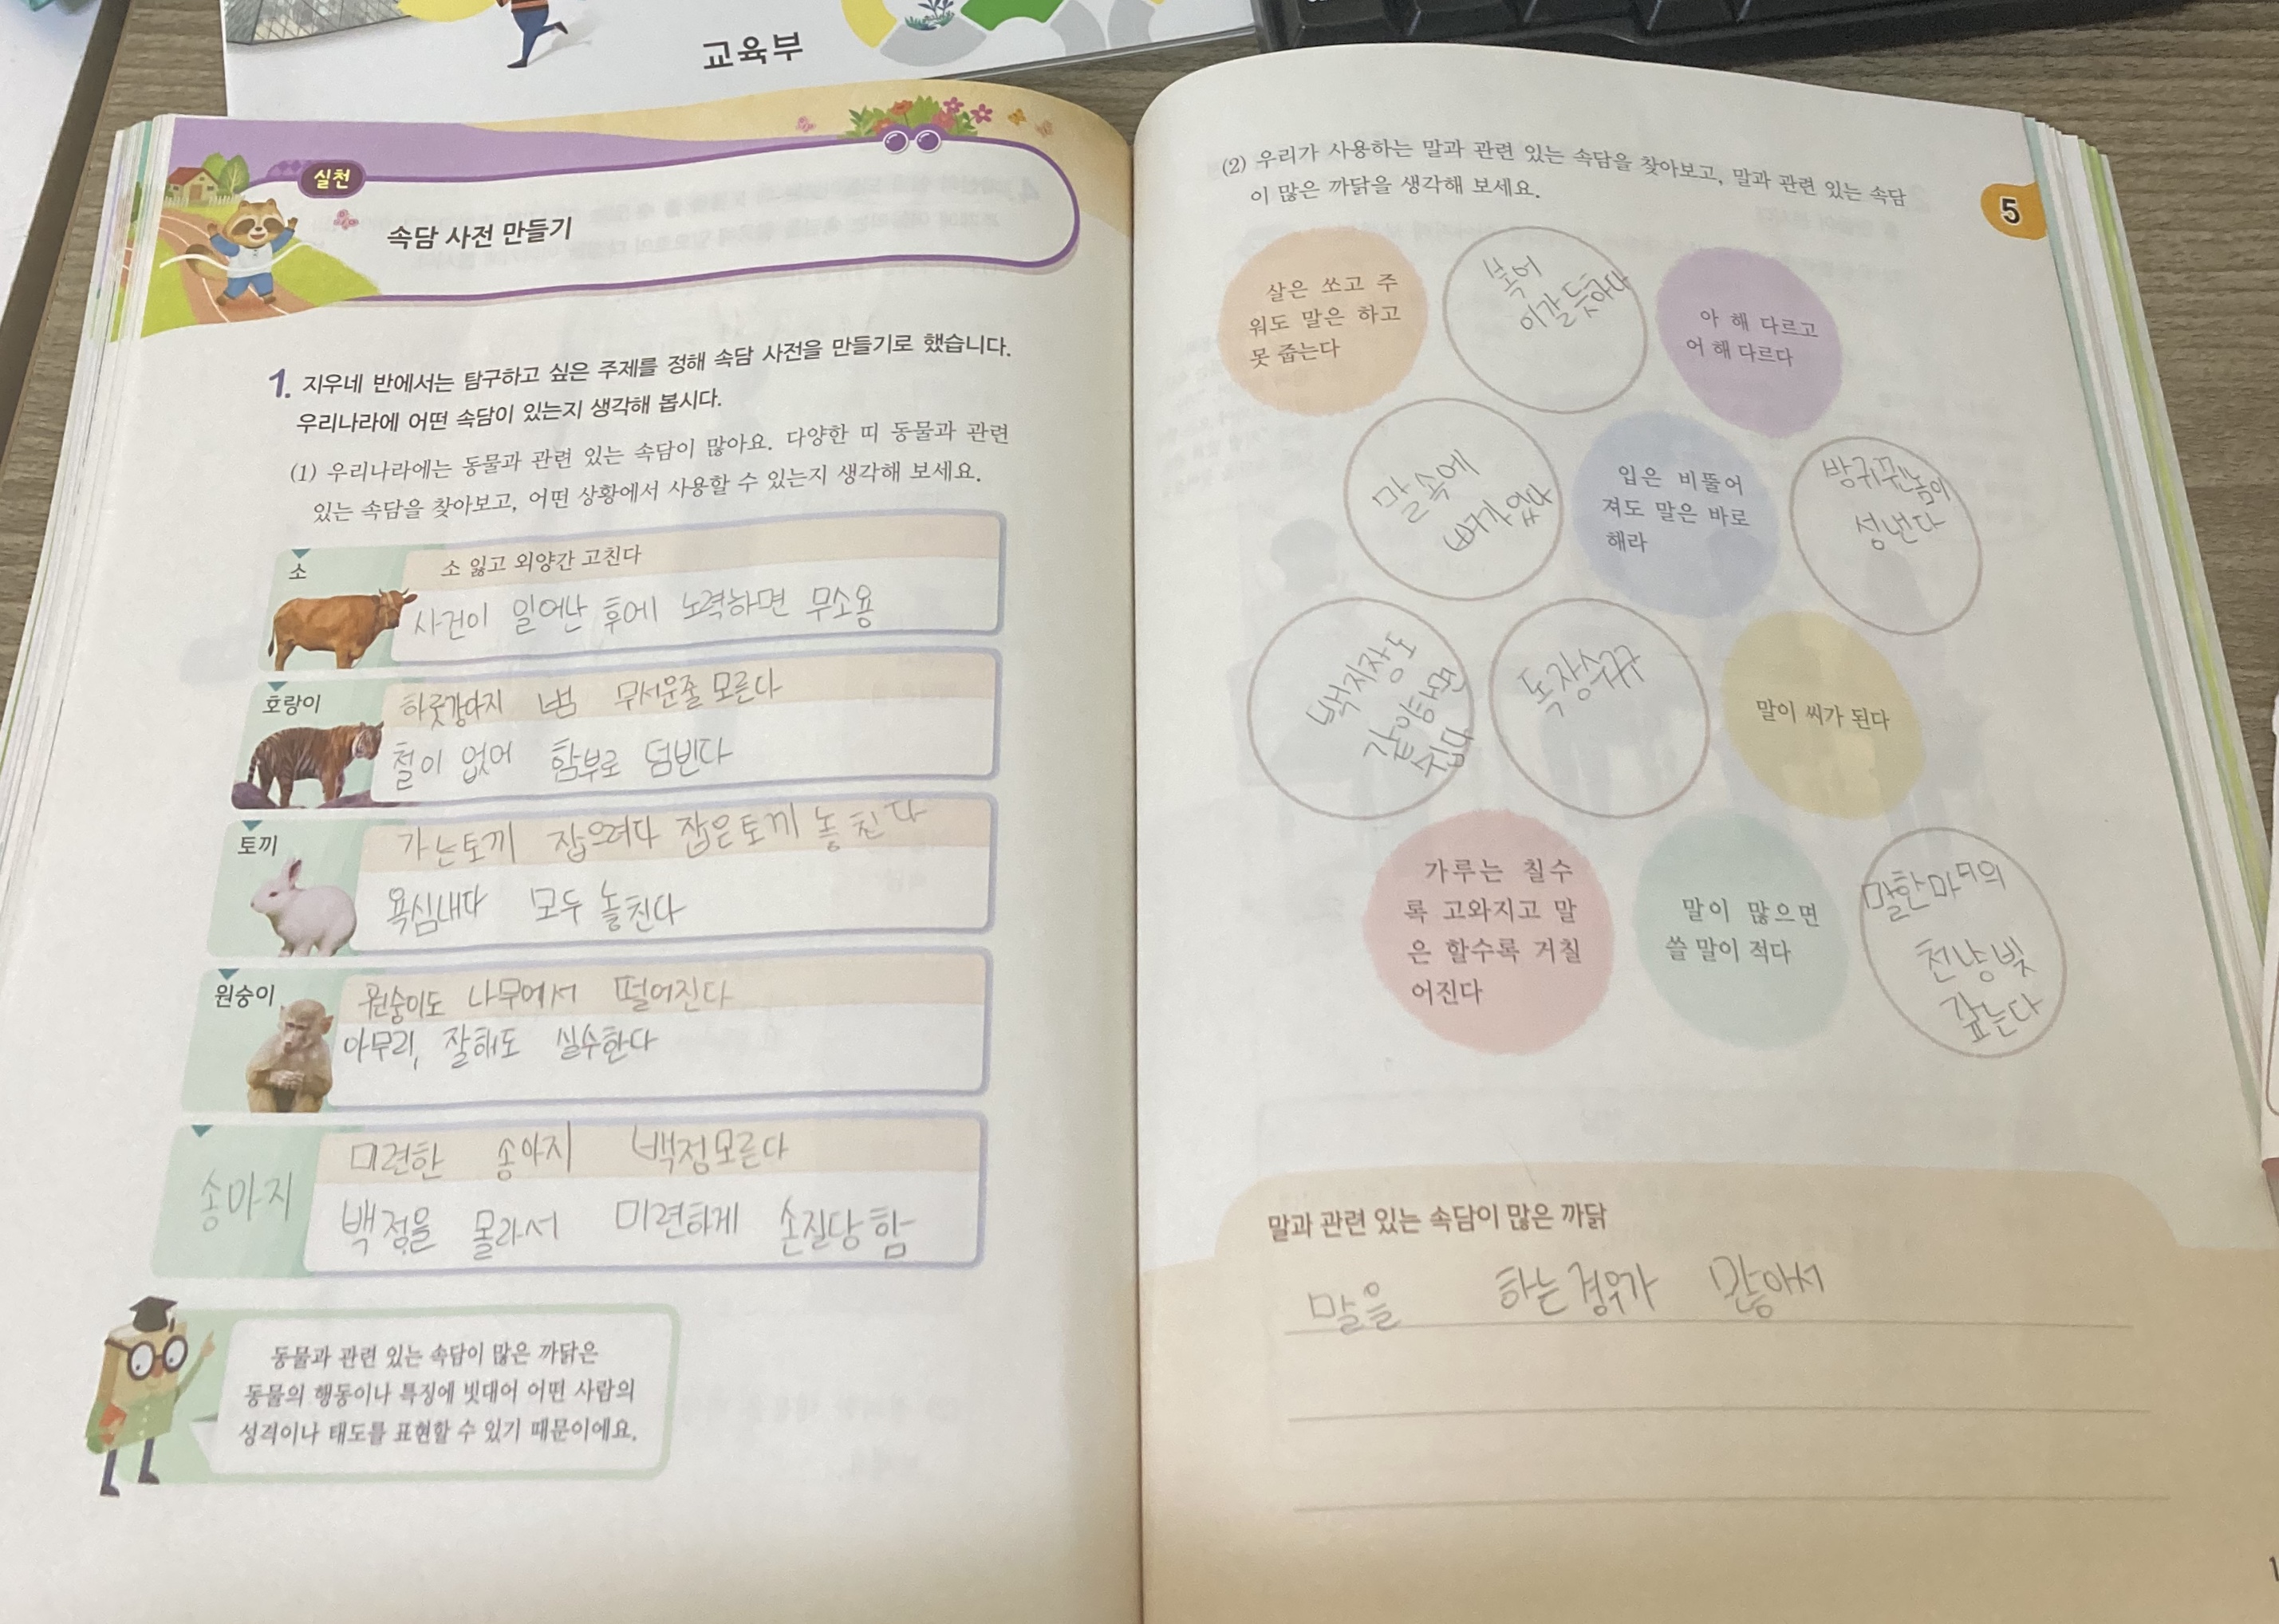 교육부
실천
속담 사전 만들기
1. 지우네 반에서는 탐구하고 싶은 주제를 정해 속담 사전을 만들기로 했습니다.
우리나라에 어떤 속담이 있는지 생각해 봅시다.
(1) 우리나라에는 동물과 관련 있는 속담이 많아요. 다양한 띠 동물과 관련
있는 속담을 찾아보고, 어떤 상황에서 사용할 수 있는지 생각해 보세요.
소
소 잃고 외양간 고친다
사건이 일어난 후에 노력하면 무소용
호랑이
하룻강아지 범 무서운줄 모른다
철이 없어 함부로 덤빈다
토끼
가는토끼 잡으려다 잡은토끼 놓친다
욕심내다 모두 놓친다
원숭이
원숭이도 나무에서 떨어진다
아무리, 잘해도 실수한다
송아지
미련한 송아지 백정모른다
백정을 몰라서 미련하게 손질당함
동물과 관련 있는 속담이 많은 까닭은
동물의 행동이나 특징에 빗대어 어떤 사람의
성격이나 태도를 표현할 수 있기 때문이에요.
(2) 우리가 사용하는 말과 관련 있는 속담을 찾아보고, 말과 관련 있는 속담
이 많은 까닭을 생각해 보세요.
5
살은 쏘고 주
워도 말은 하고
못 줍는다
복어
이갈듯하다
아 해 다르고
어 해 다르다
말속에
뼈가있다
입은 비뚤어
져도 말은 바로
해라
방귀뀐놈이
성낸다
백지장도
같이맞들면
독장수구구
말이 씨가 된다
가루는 칠수
록 고와지고 말
은 할수록 거칠
어진다
말이 많으면
쓸 말이 적다
말한마디의
천냥빚
갚는다
말과 관련 있는 속담이 많은 까닭
말을 하는경우가 많아서